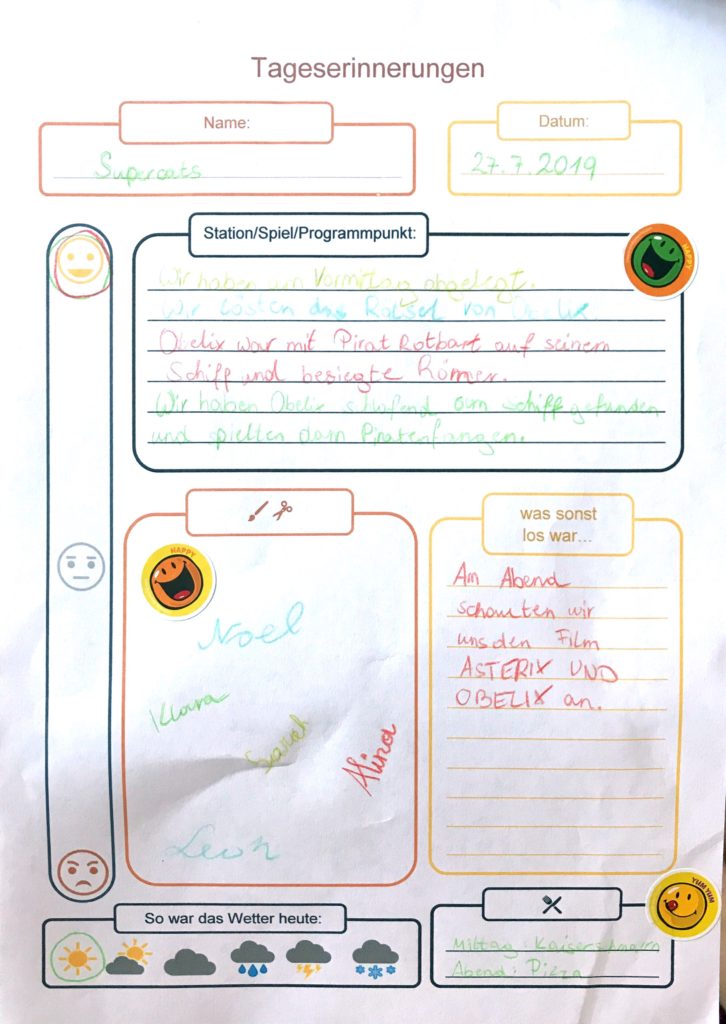 Tageserinnerungen
Name:
Supercats
Datum:
27.7.2019
Station/Spiel/Programmpunkt:
HAPPY
Wir haben am Vormittag abgelegt.
Wir lösten das Rätsel von Obelix.
Obelix war mit Pirat Rotbart auf seinem
Schiff und besiegte Römer.
Wir haben Obelix slafend am schiff gefunden
und spielten dann Piratenfangen.
HAPPY
Noel
Klara
Sarah
Alina
Leon
was sonst
los war...
Am Abend
schauten wir
uns den Film
ASTERIX UND
OBELIX an.
So war das Wetter heute:
YUM YUM
Mittag: Kaiserschmarrn
Abend: Pizza